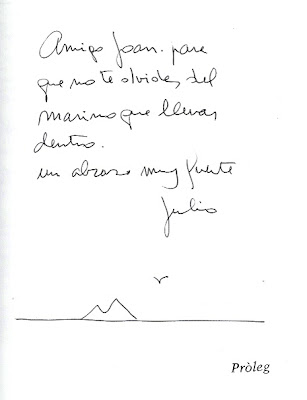 Amigo Joan. para
que no te olvides del
marino que llevas
dentro.
un abrazo muy fuerte
Julio
Pròleg